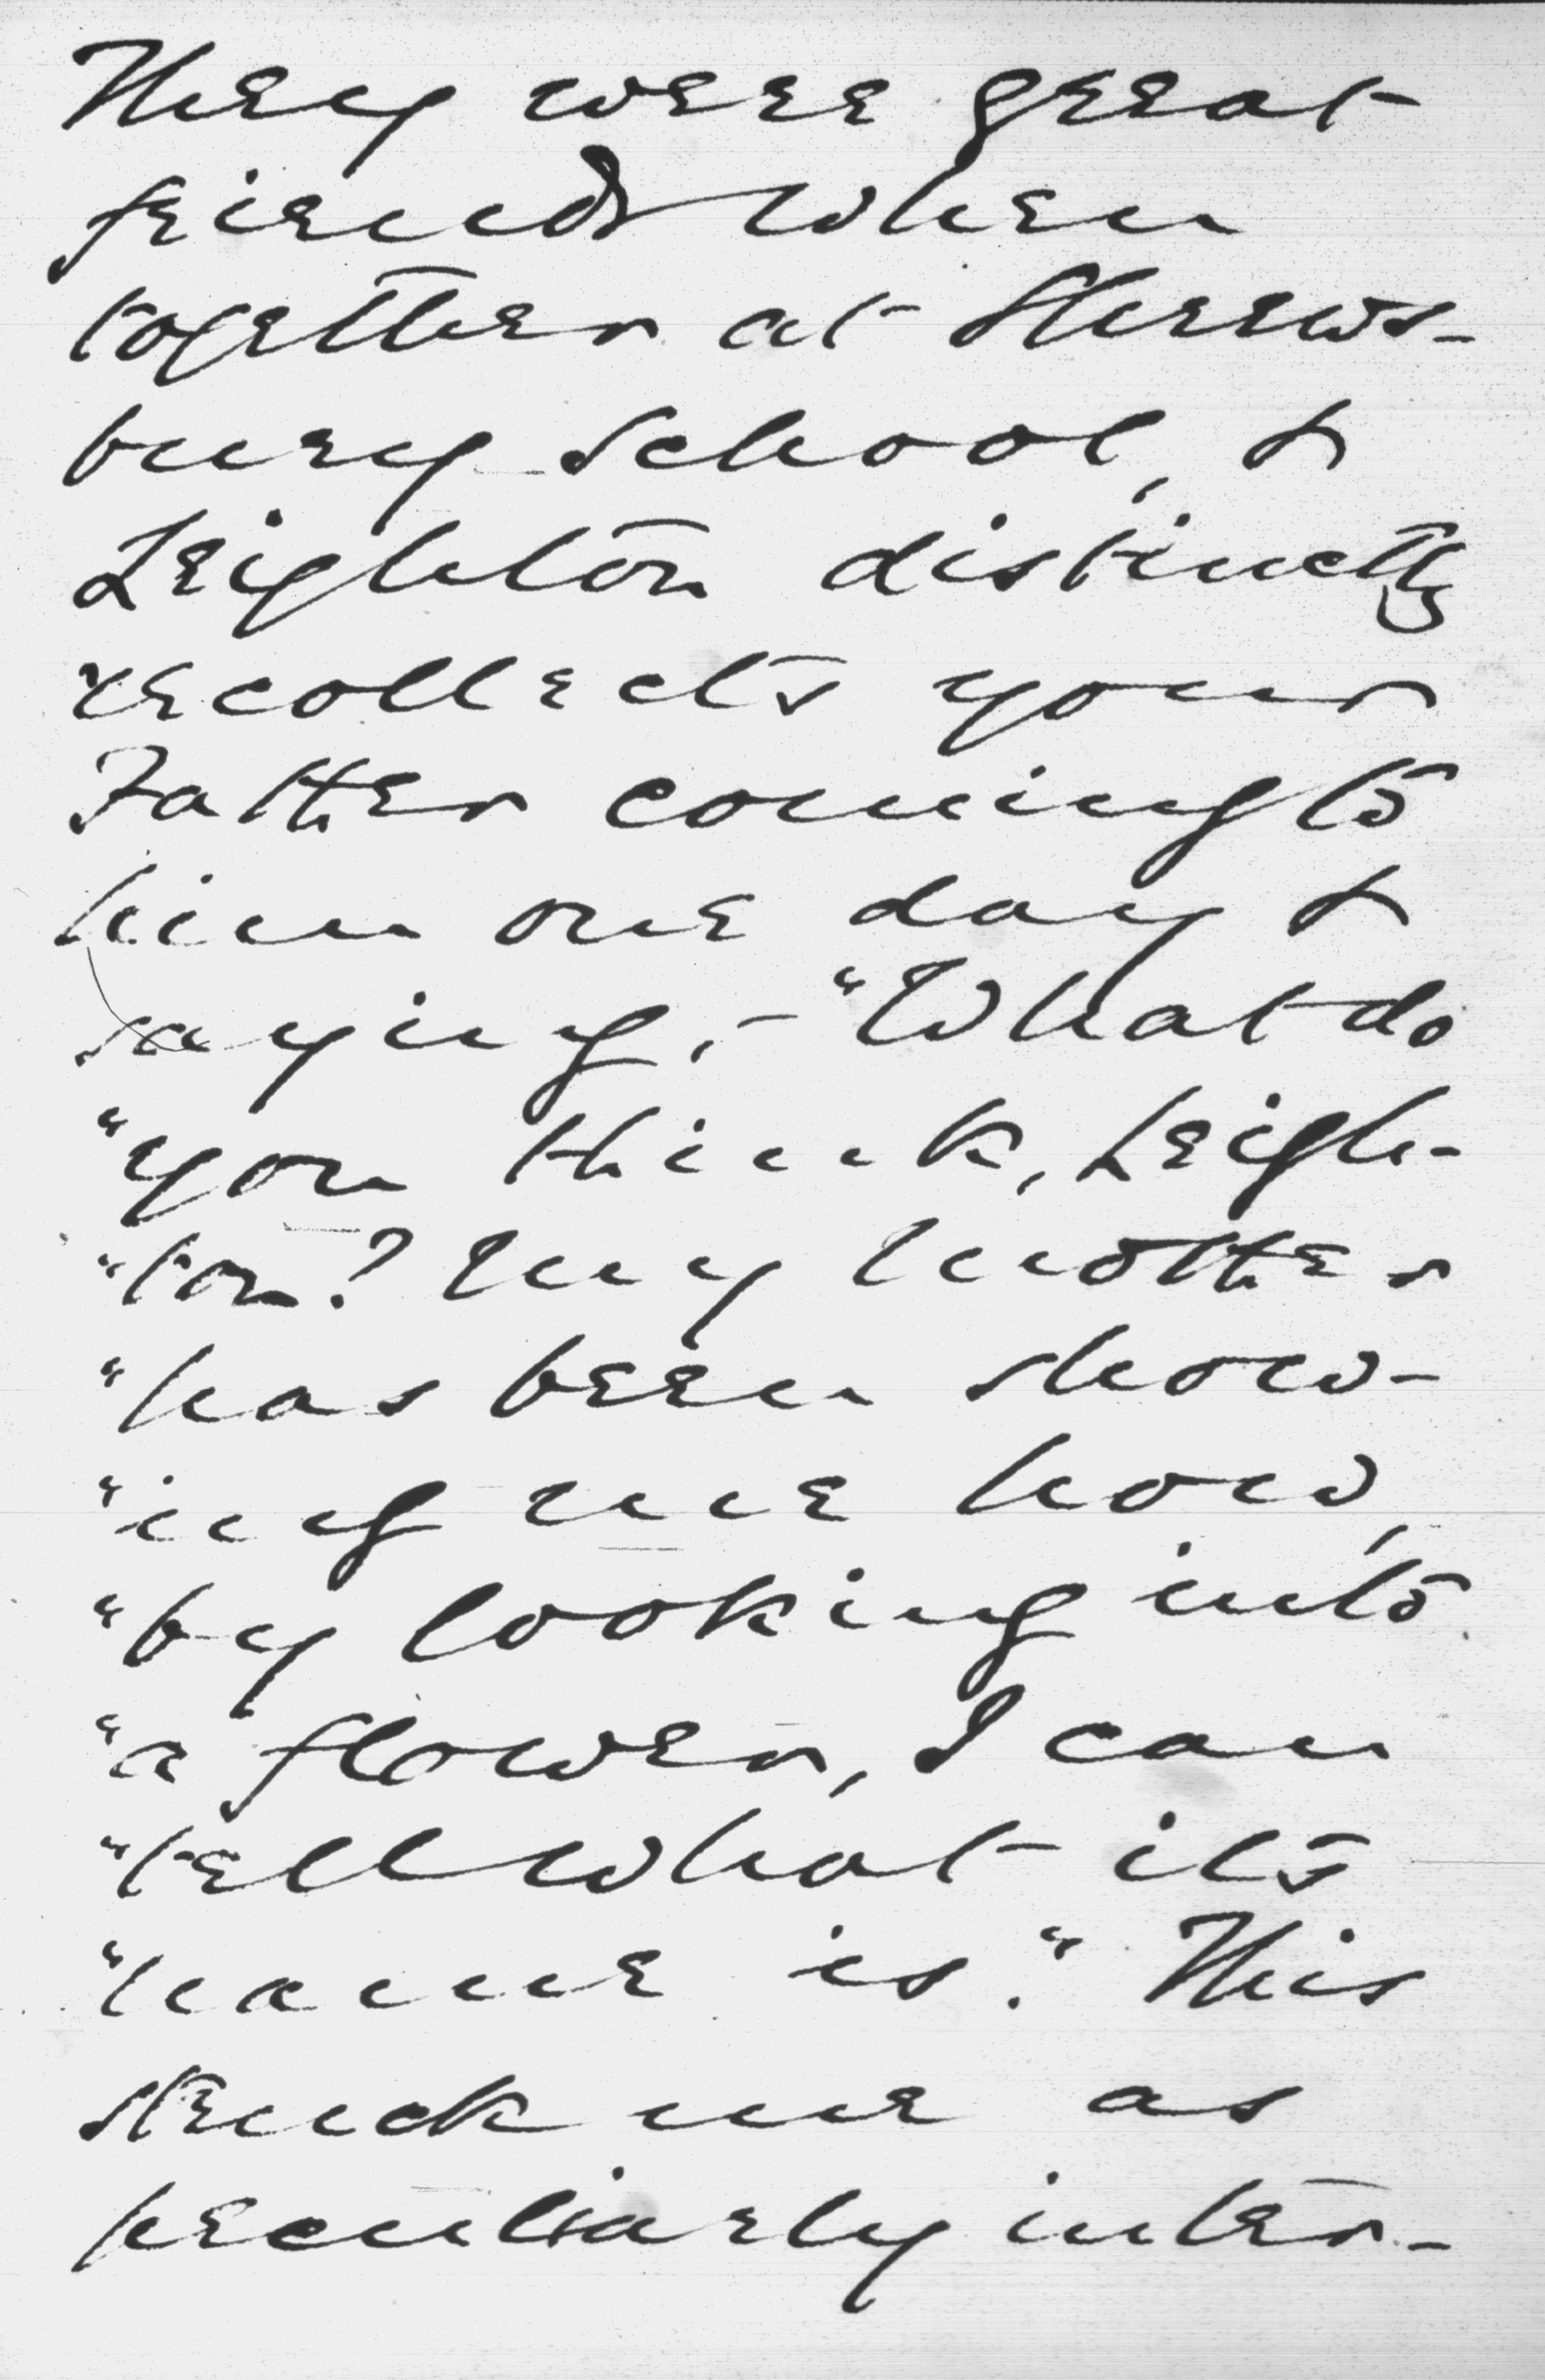 They were great
friends when
together at Shrews-
bury School, &
Leighton distinctly
recollects your
Father coming to
him one day &
saying,- "What do
"you think, Leigh-
"ton? My mother
"has been show-
"ing me how,
"by looking into
"a flower, I can
"tell what its
"name is." This
struck me as
peculiarly inter-